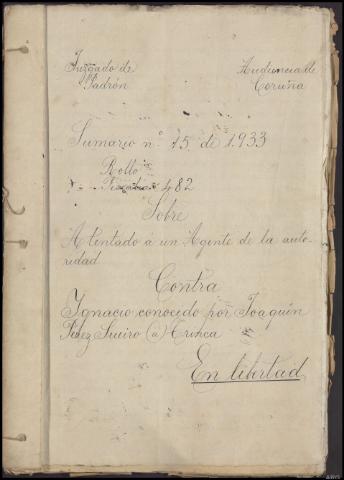 Juzgado de
Padrón
Audiencia de
Coruña
Sumario nº 75 de 1.933
Rollo
482
Sobre
Atentado á un Agente de la auto-
ridad
Contra
Ygnacio conocido por Joaquin
Perez Sueiro (a)
En libertad